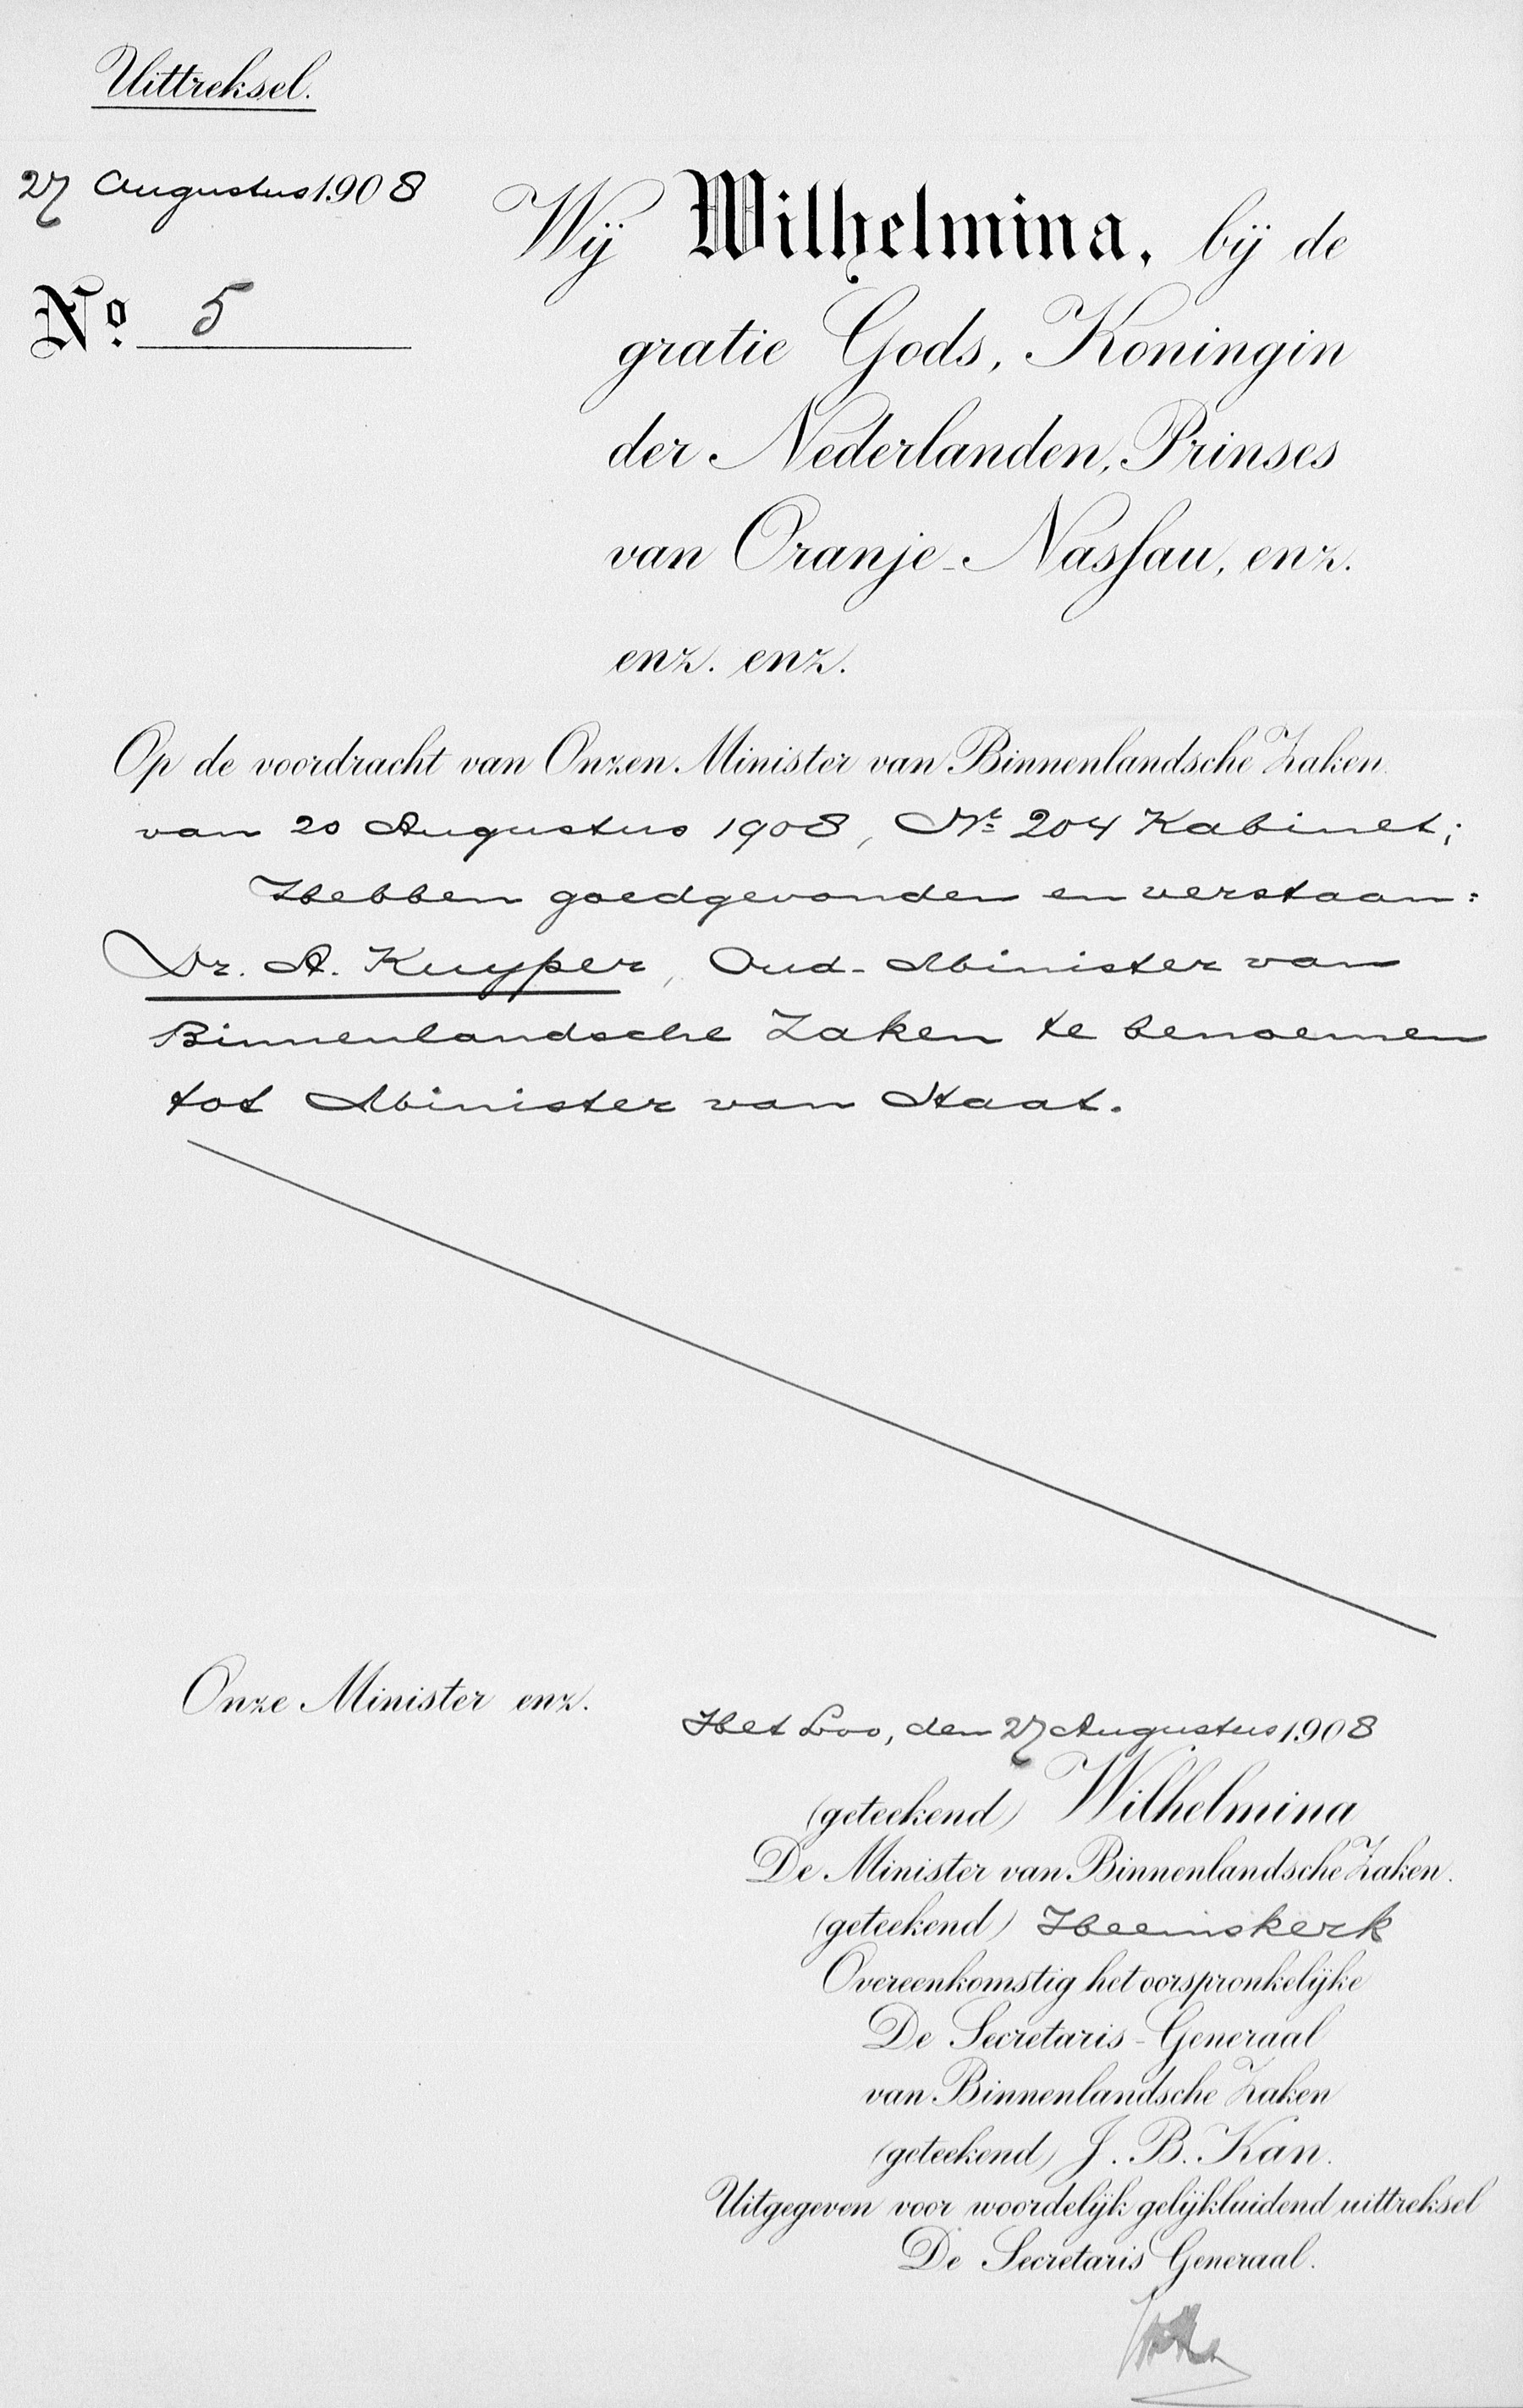 Uittreksel.
27 Augustus 1908
No. 5
Wij Wilhelmina, bij de
gratie Gods, Koningin
der Nederlanden, Prinses
van Oranje-Nassau, enz.
enz. enz.
Op de voordracht van Onzen Minister van Binnenlandsche Zaken
van 20 Augustus 1908, No 204 Kabinet;
Hebben goedgevonden en verstaan:
Dr. A. Kuyper, Oud-Minister van
Binnenlandsche Zaken te benoemen
tot Minister van Staat.
Onze Minister enz.
Het Loo, den 27 Augustus 1908
(geteekend) Wilhelmina
De Minister van Binnenlandsche Zaken.
(geteekend) Heemskerk
Overeenkomstig het oorspronkelijke
De Secretaris-Generaal
van Binnenlandsche Zaken
(geteekend) J. B. Kan.
Uitgegeven voor woordelijk gelijkluidend uittreksel
De Secretaris Generaal.